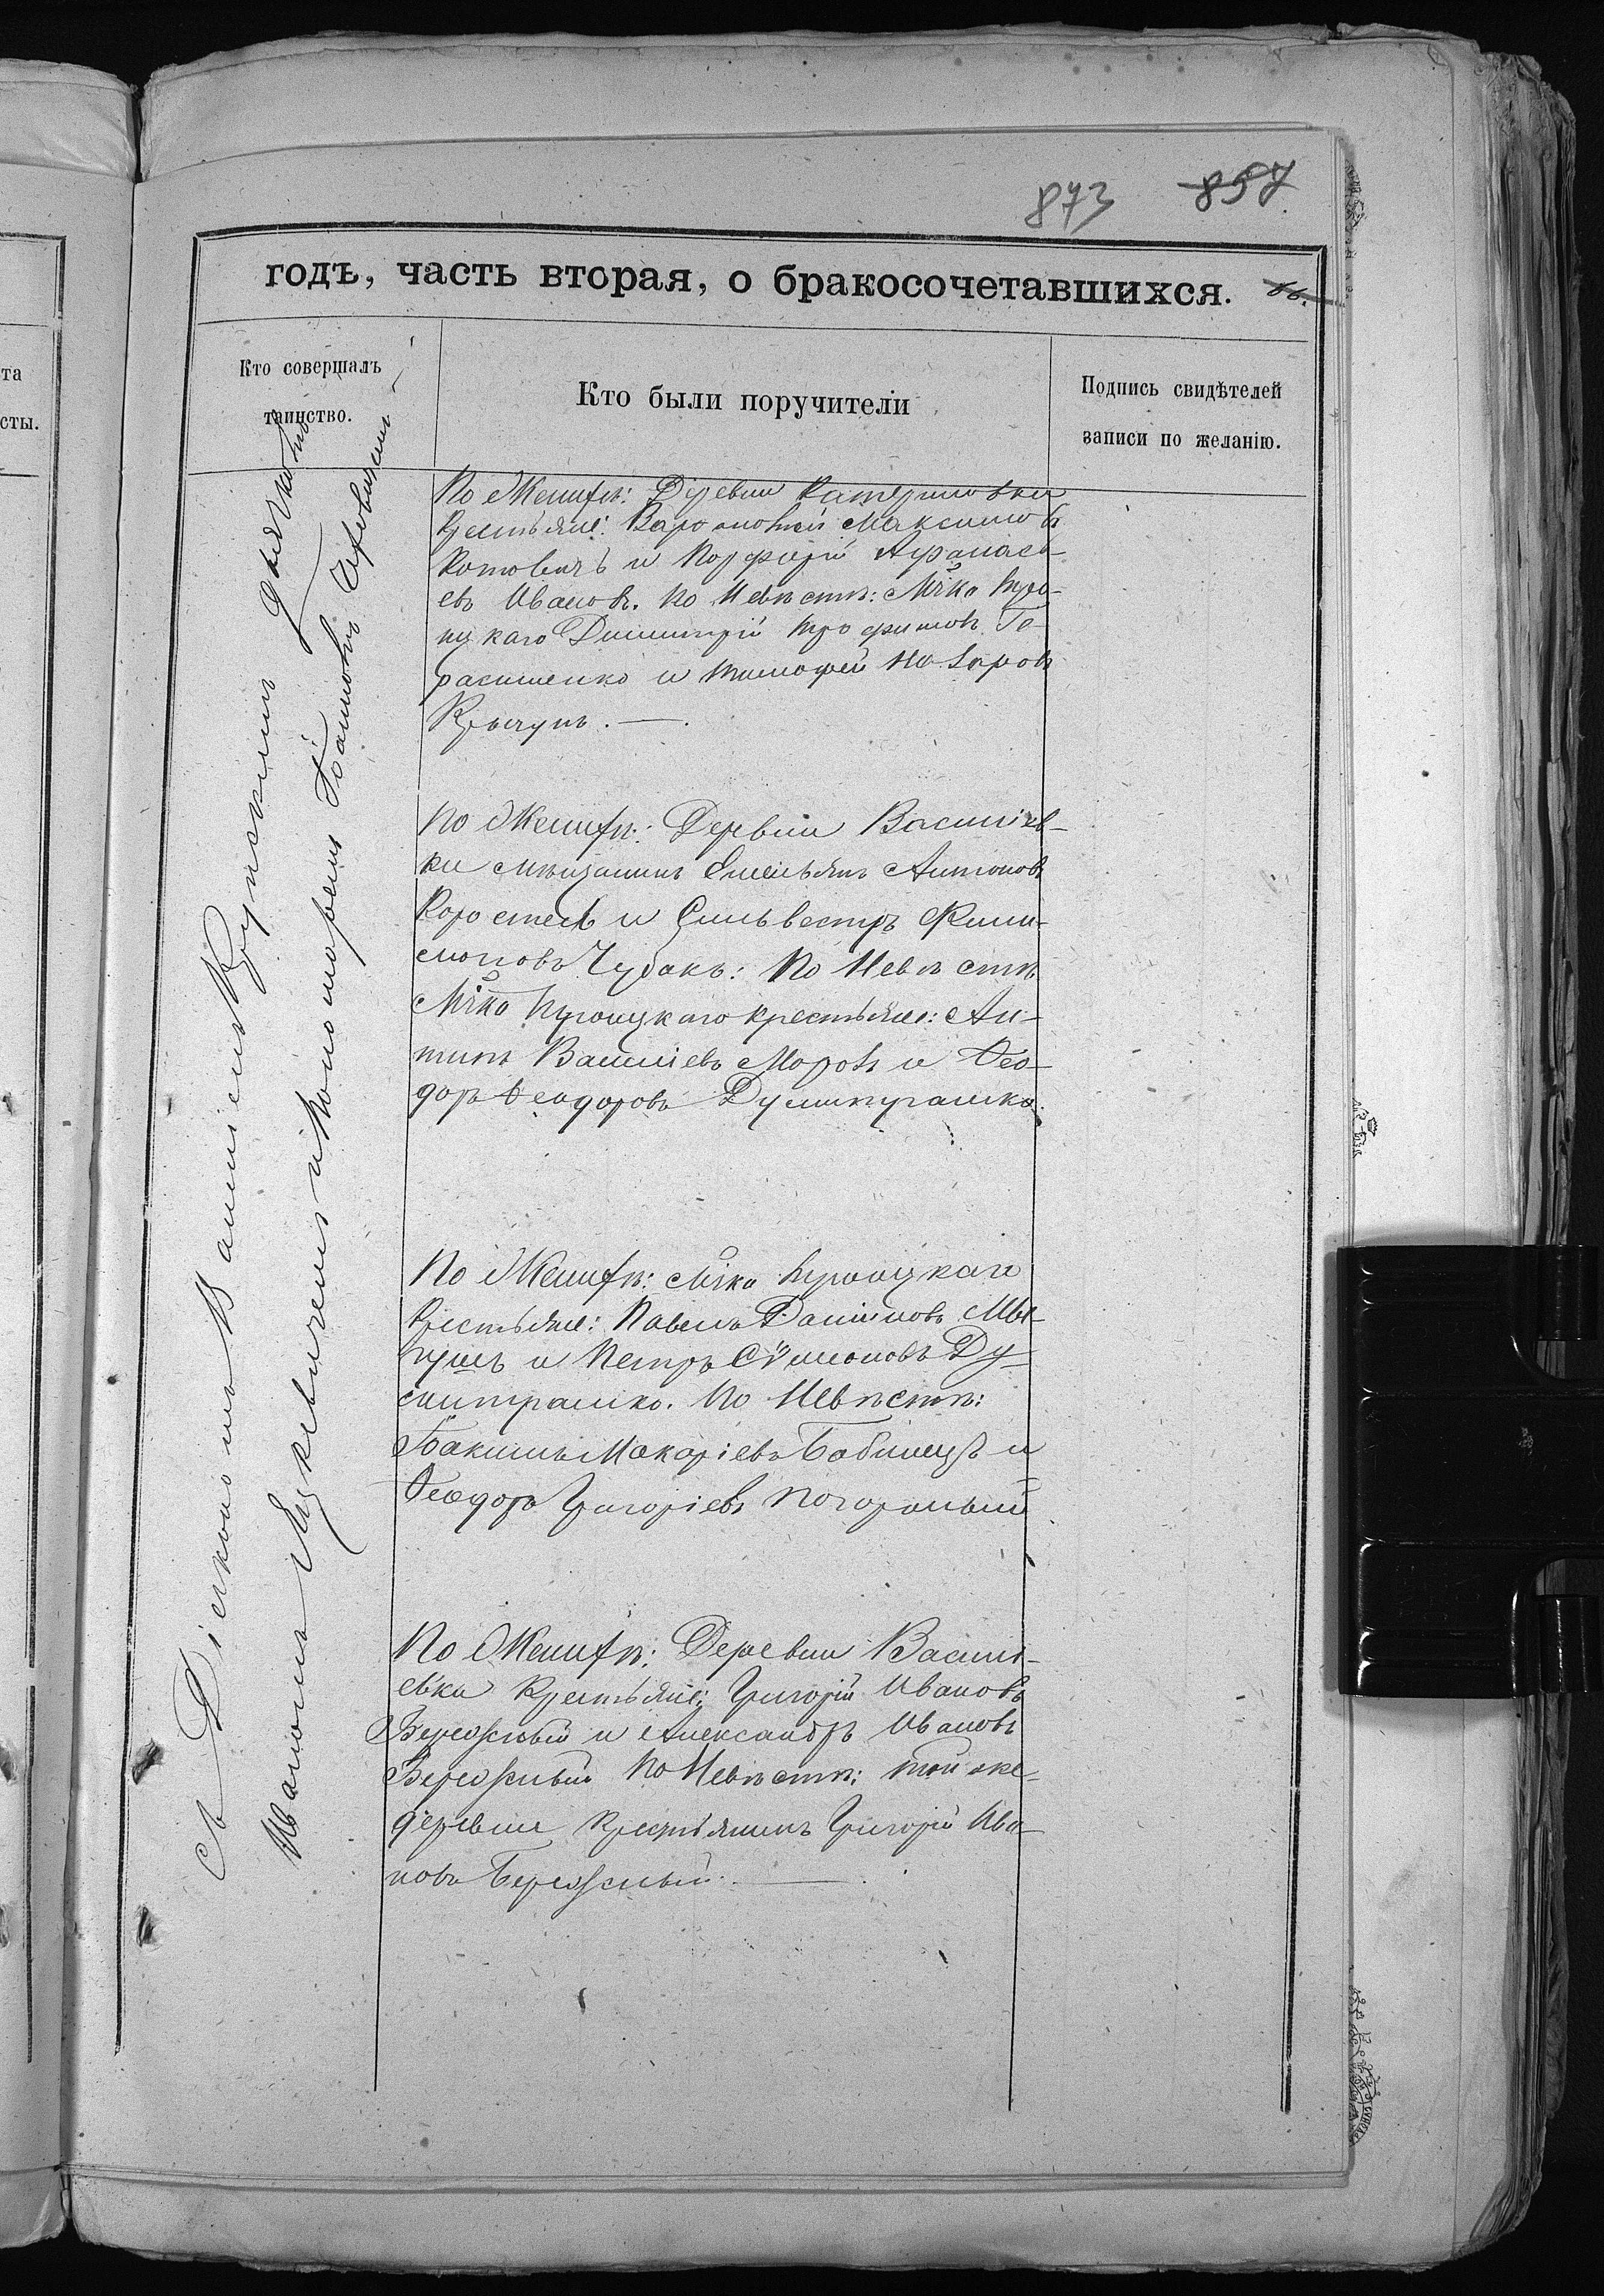 873 857
годъ, часть вторая, о бракосочетавшихся.
та
сты.
Кто совершалъ
таинство.
Кто были поручители
Подпись свидѣтелей
записи по желанію.
съ Діякономъ Василіемъ Крупскимъ
Иваномъ и Пономаремъ
По Женихѣ: Деревни Катериновки
Крестьяне: Варѳоломей Максимовъ
Котовичъ и Порфирій Аѳанась-
евъ Ивановъ. По Невѣстѣ: Мѣчка Тро-
ицкаго Димитрій Трофимовъ Ге-
расименко и Тимофей Назаровъ
Крычунъ. —.
По Женихѣ: Деревни Василіев-
ки мѣщанинъ Емельянъ Антоновъ
Коростель и Сильвестръ Фили-
моновъ Чубакъ: По Невѣстѣ
Мѣчка Троицкаго крестьяне: Ан-
типъ Василіевъ Морозъ и Ѳео-
доръ Ѳеодоровъ Думитрашко.
По Женихѣ: Мѣчка Троицкаго
Крестьяне: Павелъ Даниловъ
и Петръ Сѵмеоновъ Ду-
митрашко. По Невѣстѣ:
Іоакимъ Макаріевъ Бабинецъ и
Ѳеодоръ Григоріевъ Погорѣлый
По Женихѣ: Деревни Василі-
евки Крестьяне: Григорій Ивановъ
Бережный и Александръ Ивановъ
Бережный По Невѣстѣ: той же-
деревни Крестьянинъ Григорій Ива-
новъ Бережный. —.